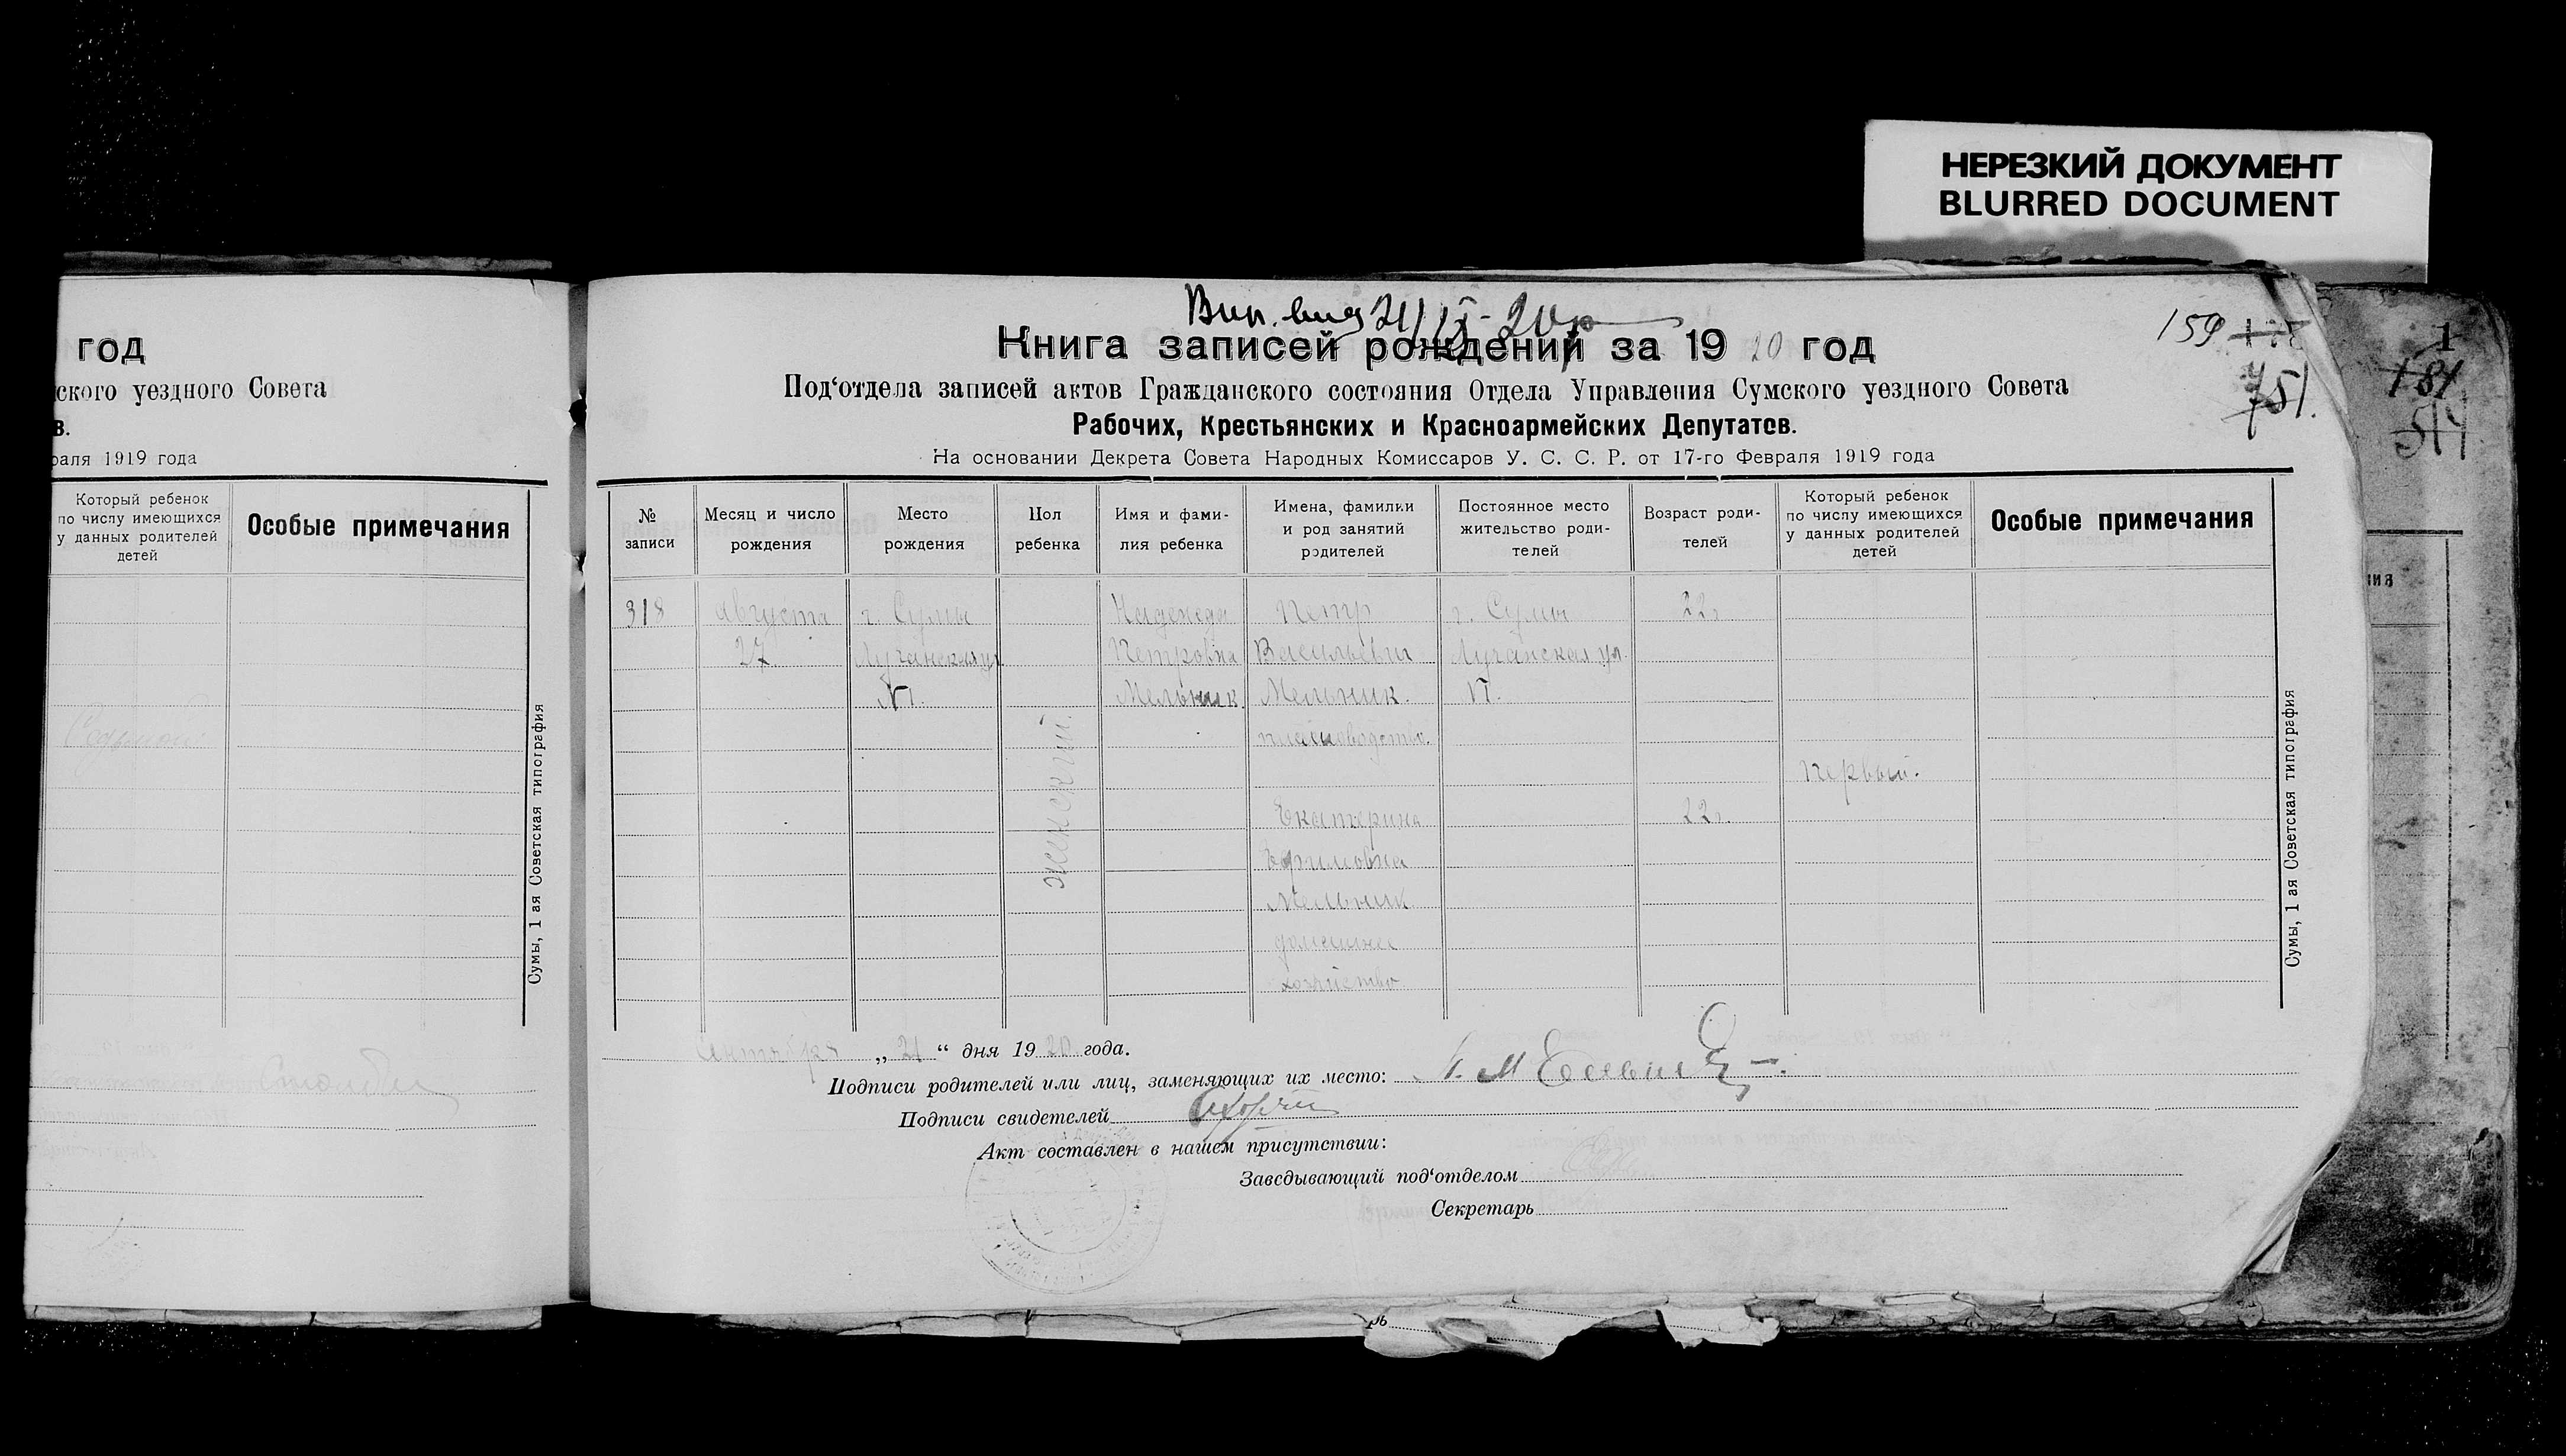 НЕРЕЗКИЙ ДОКУМЕНТ
BLURRED DOCUMENT
год
ского уездного Совета
в.
раля 1919 года
Который ребенок
по числу имеющихся
у данных родителей
детей
Особые примечания
Седьмой.
Сумы, 1 ая Советская типография
159
751.
1
181
514
Книга записей рождений за 1920 год
Под‘отдела записей актов Гражданского состояния Отдела Управления Сумского уездного Совета
Рабочих, Крестьянских и Красноармейских Депутатов.
На основании Декрета Совета Народных Комиссаров У. С. С. Р. от 17-го Февраля 1919 года
№ записи
Месяц и число рождения
Место рождения
Пол ребенка
Имя и фами-
лия ребенка
Имена, фамилии
и род занятий
родителей
Постоянное место
жительство роди-
телей
Возраст роди-
телей
Который ребенок
по числу имеющихся
у данных родителей
детей
Особые примечания
318 августа г. Сумы Надежда Петр г. Сумы 22г.
27. Лучанская ул Петровна Васильевич Лучанская ул.
№1. Мельник. Мельник. №1.
женский.
первый.
Екатерина 22г.
Ефимовна
Мельник.
домашнее
хозяйство
Сумы, 1 ая Советская типография
Сентября „ 21 “ дня 1920 года.
Подписи родителей или лиц, заменяющих их место:
Подписи свидетелей
Акт составлен в нашем присутствии:
Заведывающий под‘отделом
Секретарь